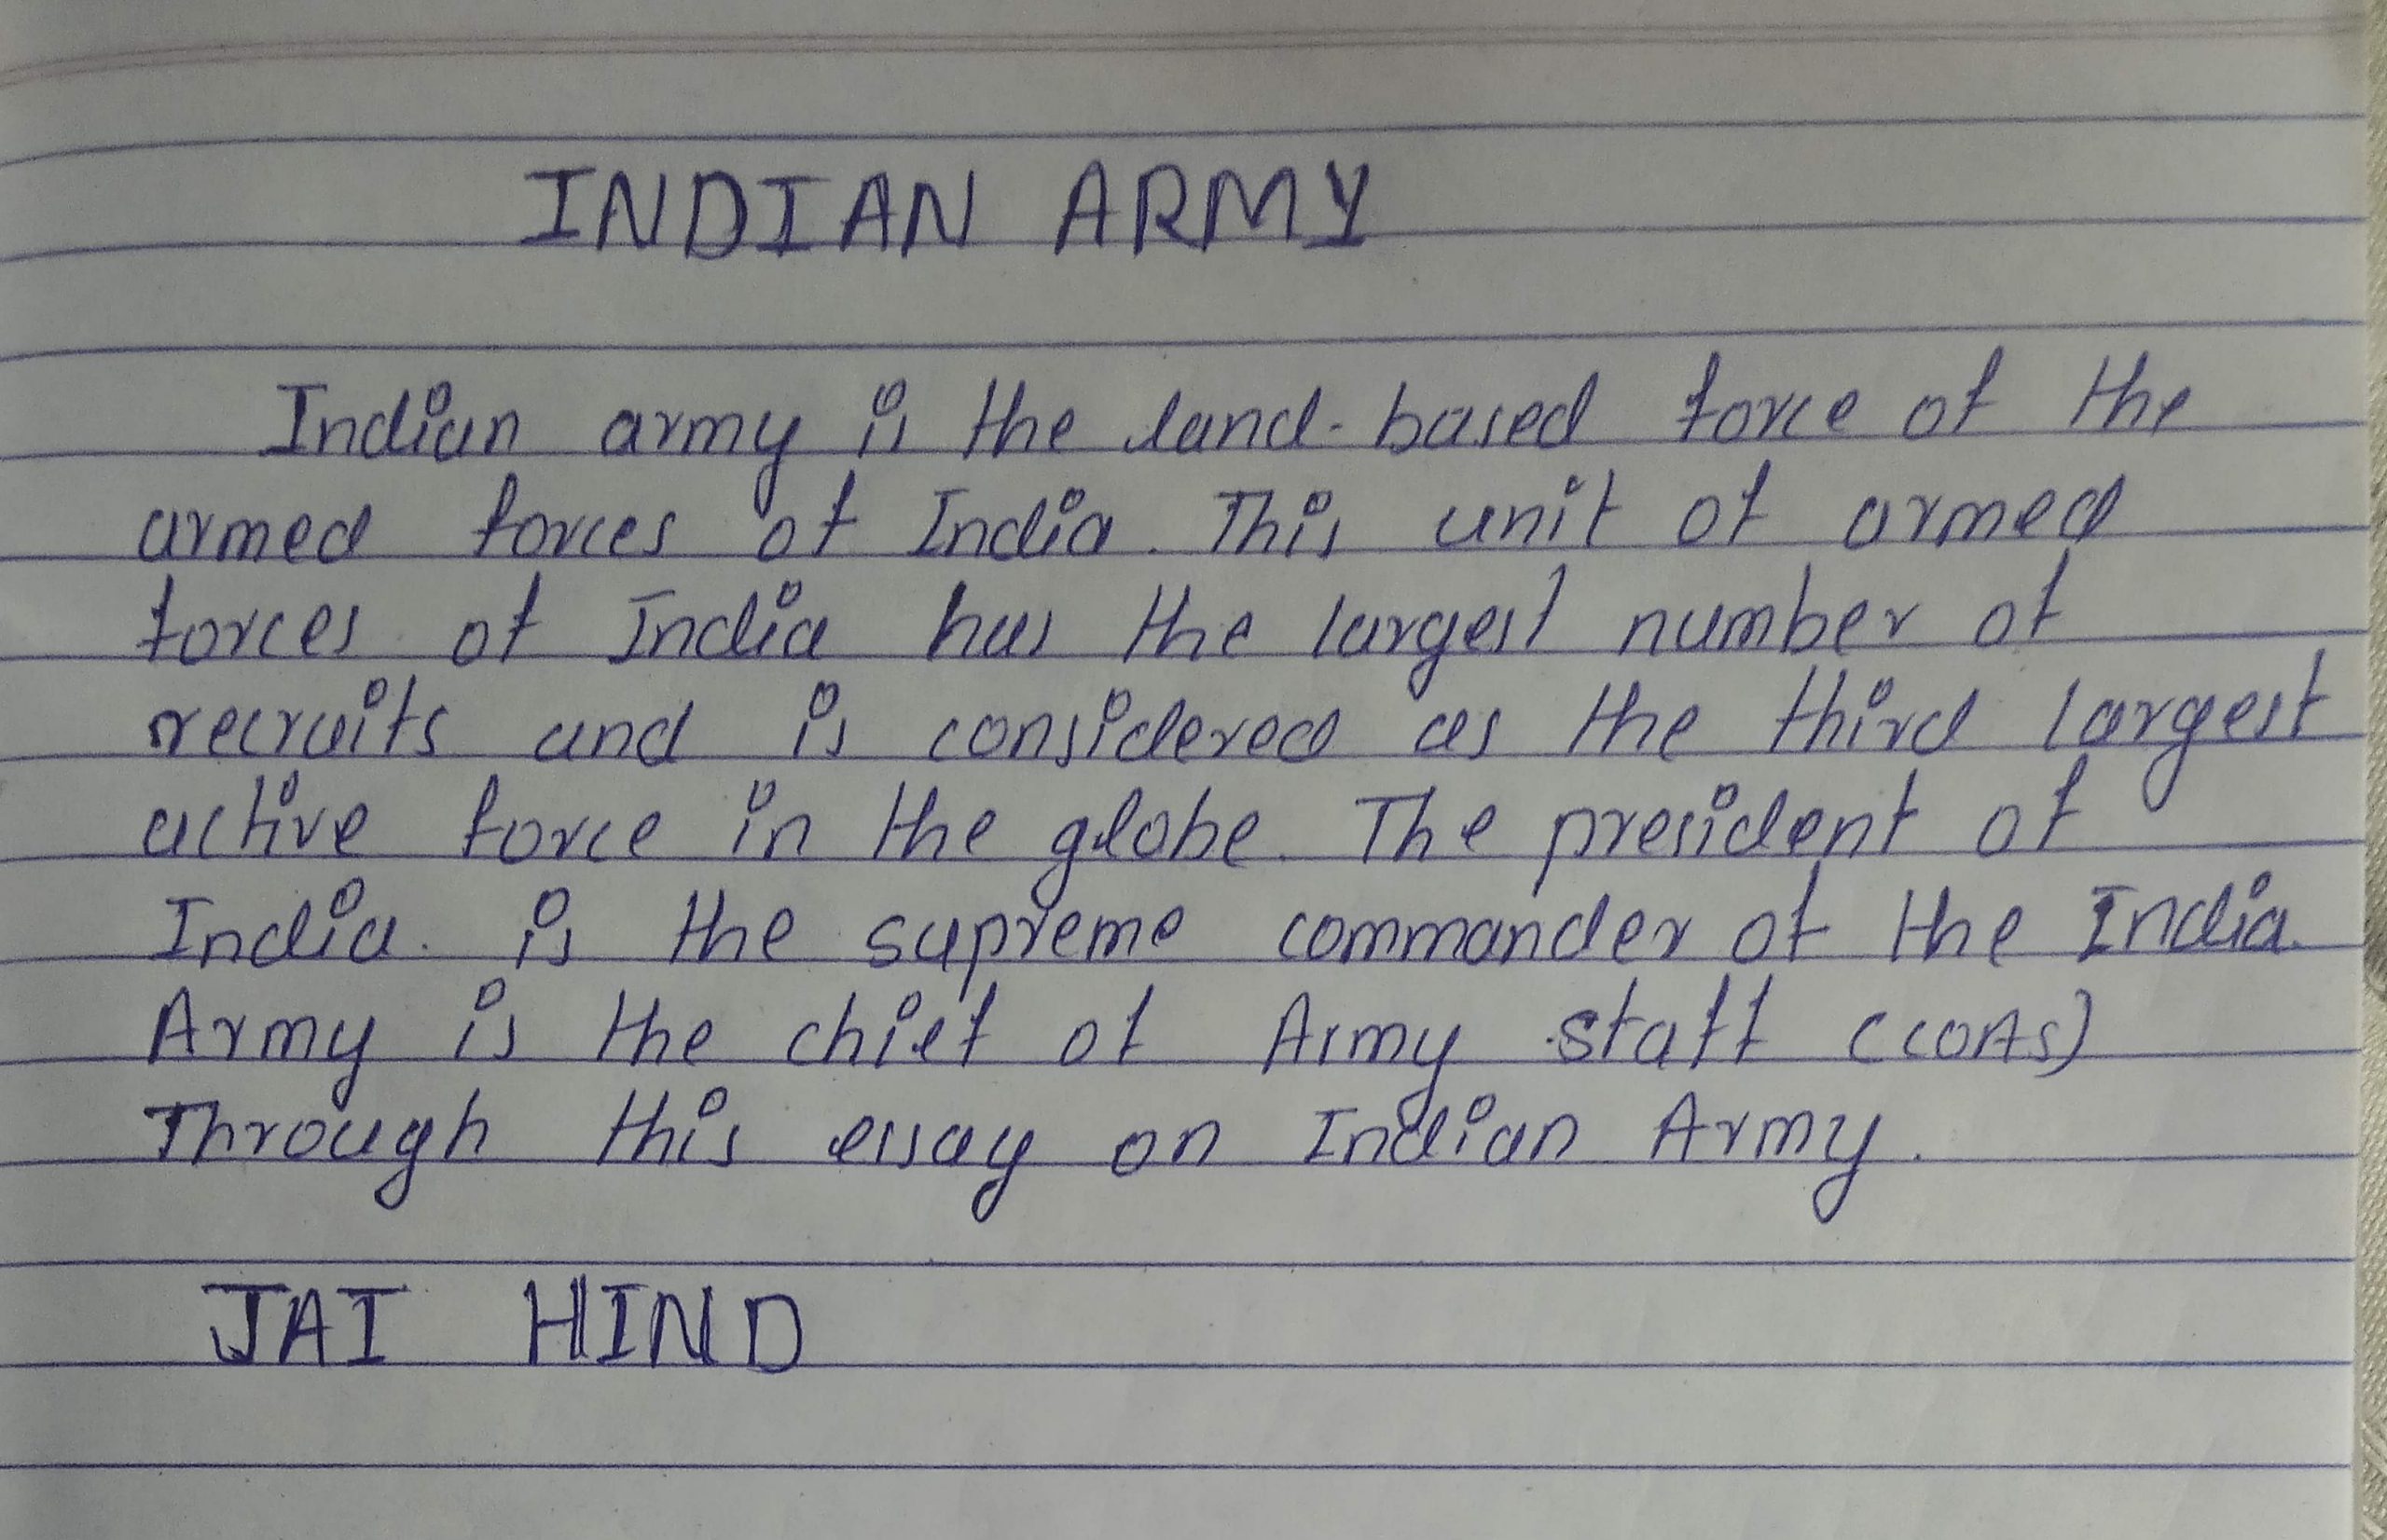 INDIAN ARMY
Indian army is the land-based force of the
armed forces of India. This unit of armed
forces of India has the largest number of
recruits and is considered as the third largest
active force in the globe. The president of
India. is the supreme commander of the India.
Army is the chief of Army staff (COAS)
Through this essay on Indian Army.
JAI HIND